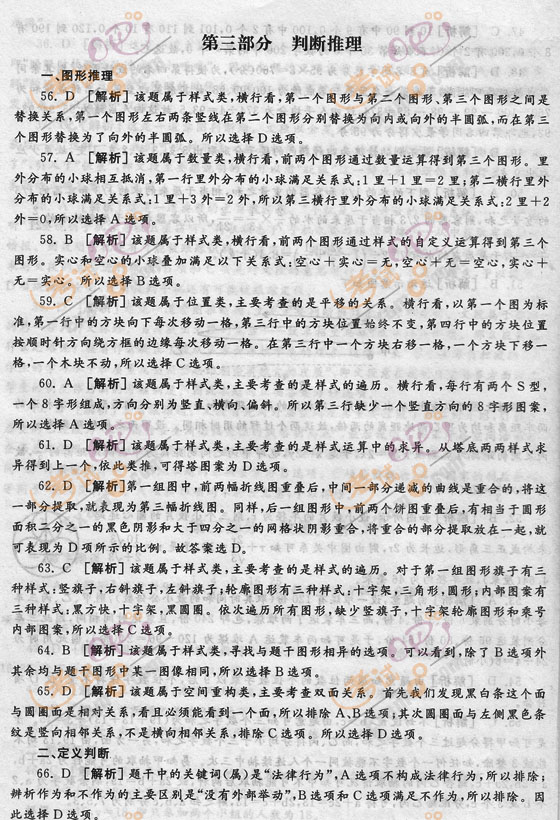 第三部分 判断推理
一、图形推理
56. D [解析]该题属于样式类,横行看,第一个图形与第二个图形、第三个图形之间是
替换关系,第一个图形左右两条竖线在第二个图形分别替换为向内或向外的半圆弧,而在第三
个图形替换为了向外的半圆弧。所以选择D选项。
57. A [解析]该题属于数量类,横行看,前两个图形通过数量运算得到第三个图形。里
外分布的小球相互抵消,第一行里外分布的小球满足关系式:1里+1里=2里;第二横行里外
分布的小球满足关系式:1里+3外=2外,所以第三横行里外分布的小球满足关系式:2里+2
外=0,所以选择A选项。
58. B [解析]该题属于样式类,横行看,前两个图形通过样式的自定义运算得到第三个
图形。实心和空心的小球叠加满足以下关系式:空心+实心=无,空心+无=空心,实心+
无=实心。所以选择B选项。
59. C [解析]该题属于位置类,主要考查的是平移的关系。横行看,以第一个图为标
准,第一行中的方块向下每次移动一格,第三行中的方块位置始终不变,第四行中的方块位置
按顺时针方向绕方框的边缘每次移动一格。在第三行中一个方块右移一格,一个方块下移一
格,一个木块不动,所以选择C选项。
60. A [解析]该题属于样式类,主要考查的是样式的遍历。横行看,每行有两个S型,
一个8字形组成,方向分别为竖直、横向、偏斜。所以第三行缺少一个竖直方向的8字形图案,
所以选择A选项。
61. D [解析]该题属于样式类,主要考查的是样式运算中的求异。从塔底两两样式求
异得到上一个,依此类推,可得塔图案为D选项。
62. D [解析]第一组图中,前两幅折线图重叠后,中间一部分递减的曲线是重合的,将这
一部分提取,就表现为第三幅折线图。同样,后一组图形中,前两个饼图重叠后,有相当于圆形
面积二分之一的黑色阴影和大于四分之一的网格状阴影重合,将重合的部分提取放在一起,就
可表现为D项所示的比例。故答案选D。
63. C [解析]该题属于样式类,主要考查的是样式的遍历。对于第一组图形旗子有三
种样式:竖旗子,右斜旗子,左斜旗子;轮廓图形有三种样式:十字架,三角形,圆形;内部图案有
三种样式:黑方快,十字架,黑圆圈。依次遍历所有图形,缺少竖旗子,十字架轮廓图形和乘号
内部图案,所以选择C选项。
64. B [解析]该题属于样式类,寻找与题干图形相异的选项。可以看到,除了B选项外
其余均与题干图形中某一图像相同,所以选择B选项。
65. D [解析]该题属于空间重构类,主要考查双面关系。首先我们发现黑白条这个面
与圆圈面是相对关系,看且必须能看到一个面,所以排除A、B选项;其次圆圈面与左侧黑色条
纹是竖向相邻关系,不是横向相邻关系,排除C选项。所以选择D选项。
二、定义判断
66. D [解析]题干中的关键词(属)是“法律行为”,A选项不构成法律行为,所以排除;
辨析作为和不作为的主要区别是“没有外部举动”,B选项和C选项满足不作为,所以排除。因
此选择D选项。